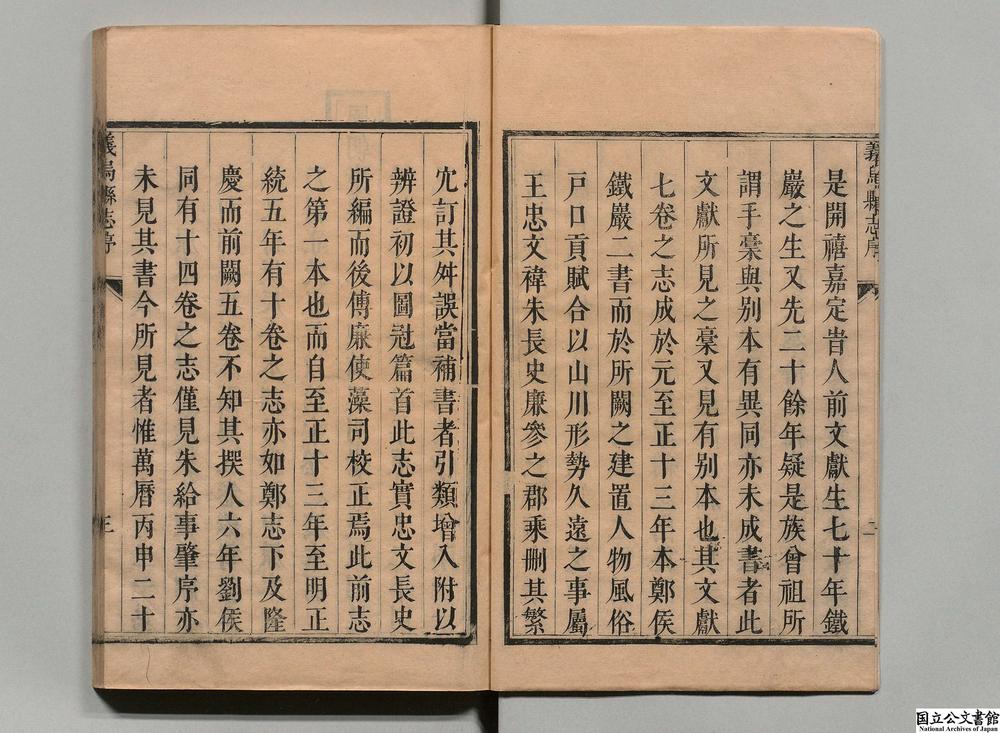 義烏縣志序
是開禧嘉定旹人前文獻生七十年鐵
巖之生又先二十餘年疑是族曾祖所
謂手稾與别本有異同亦未成書者此
文獻所見之稾又見有别本也其文獻
七卷之志成於元至正十三年本鄭侯
鐵巖二書而於所闕之建置人物風俗
戶口貢賦合以山川形勢久遠之事屬
王忠文褘朱長史廉參之郡乘刪其繁
二
冘訂其舛誤當補書者引類增入附以
辨證初以圖冠篇首此志實忠文長史
所編而後傅廉使藻司校正焉此前志
之第一本也而自至正十三年至明正
統五年有十卷之志亦如鄭志下及隆
慶而前闕五卷不知其撰人六年劉侯
同有十四卷之志僅見朱給事肇序亦
未見其書今所見者惟萬曆丙申二十
義烏縣志序
三
国立公文書館
National Archives of Japan